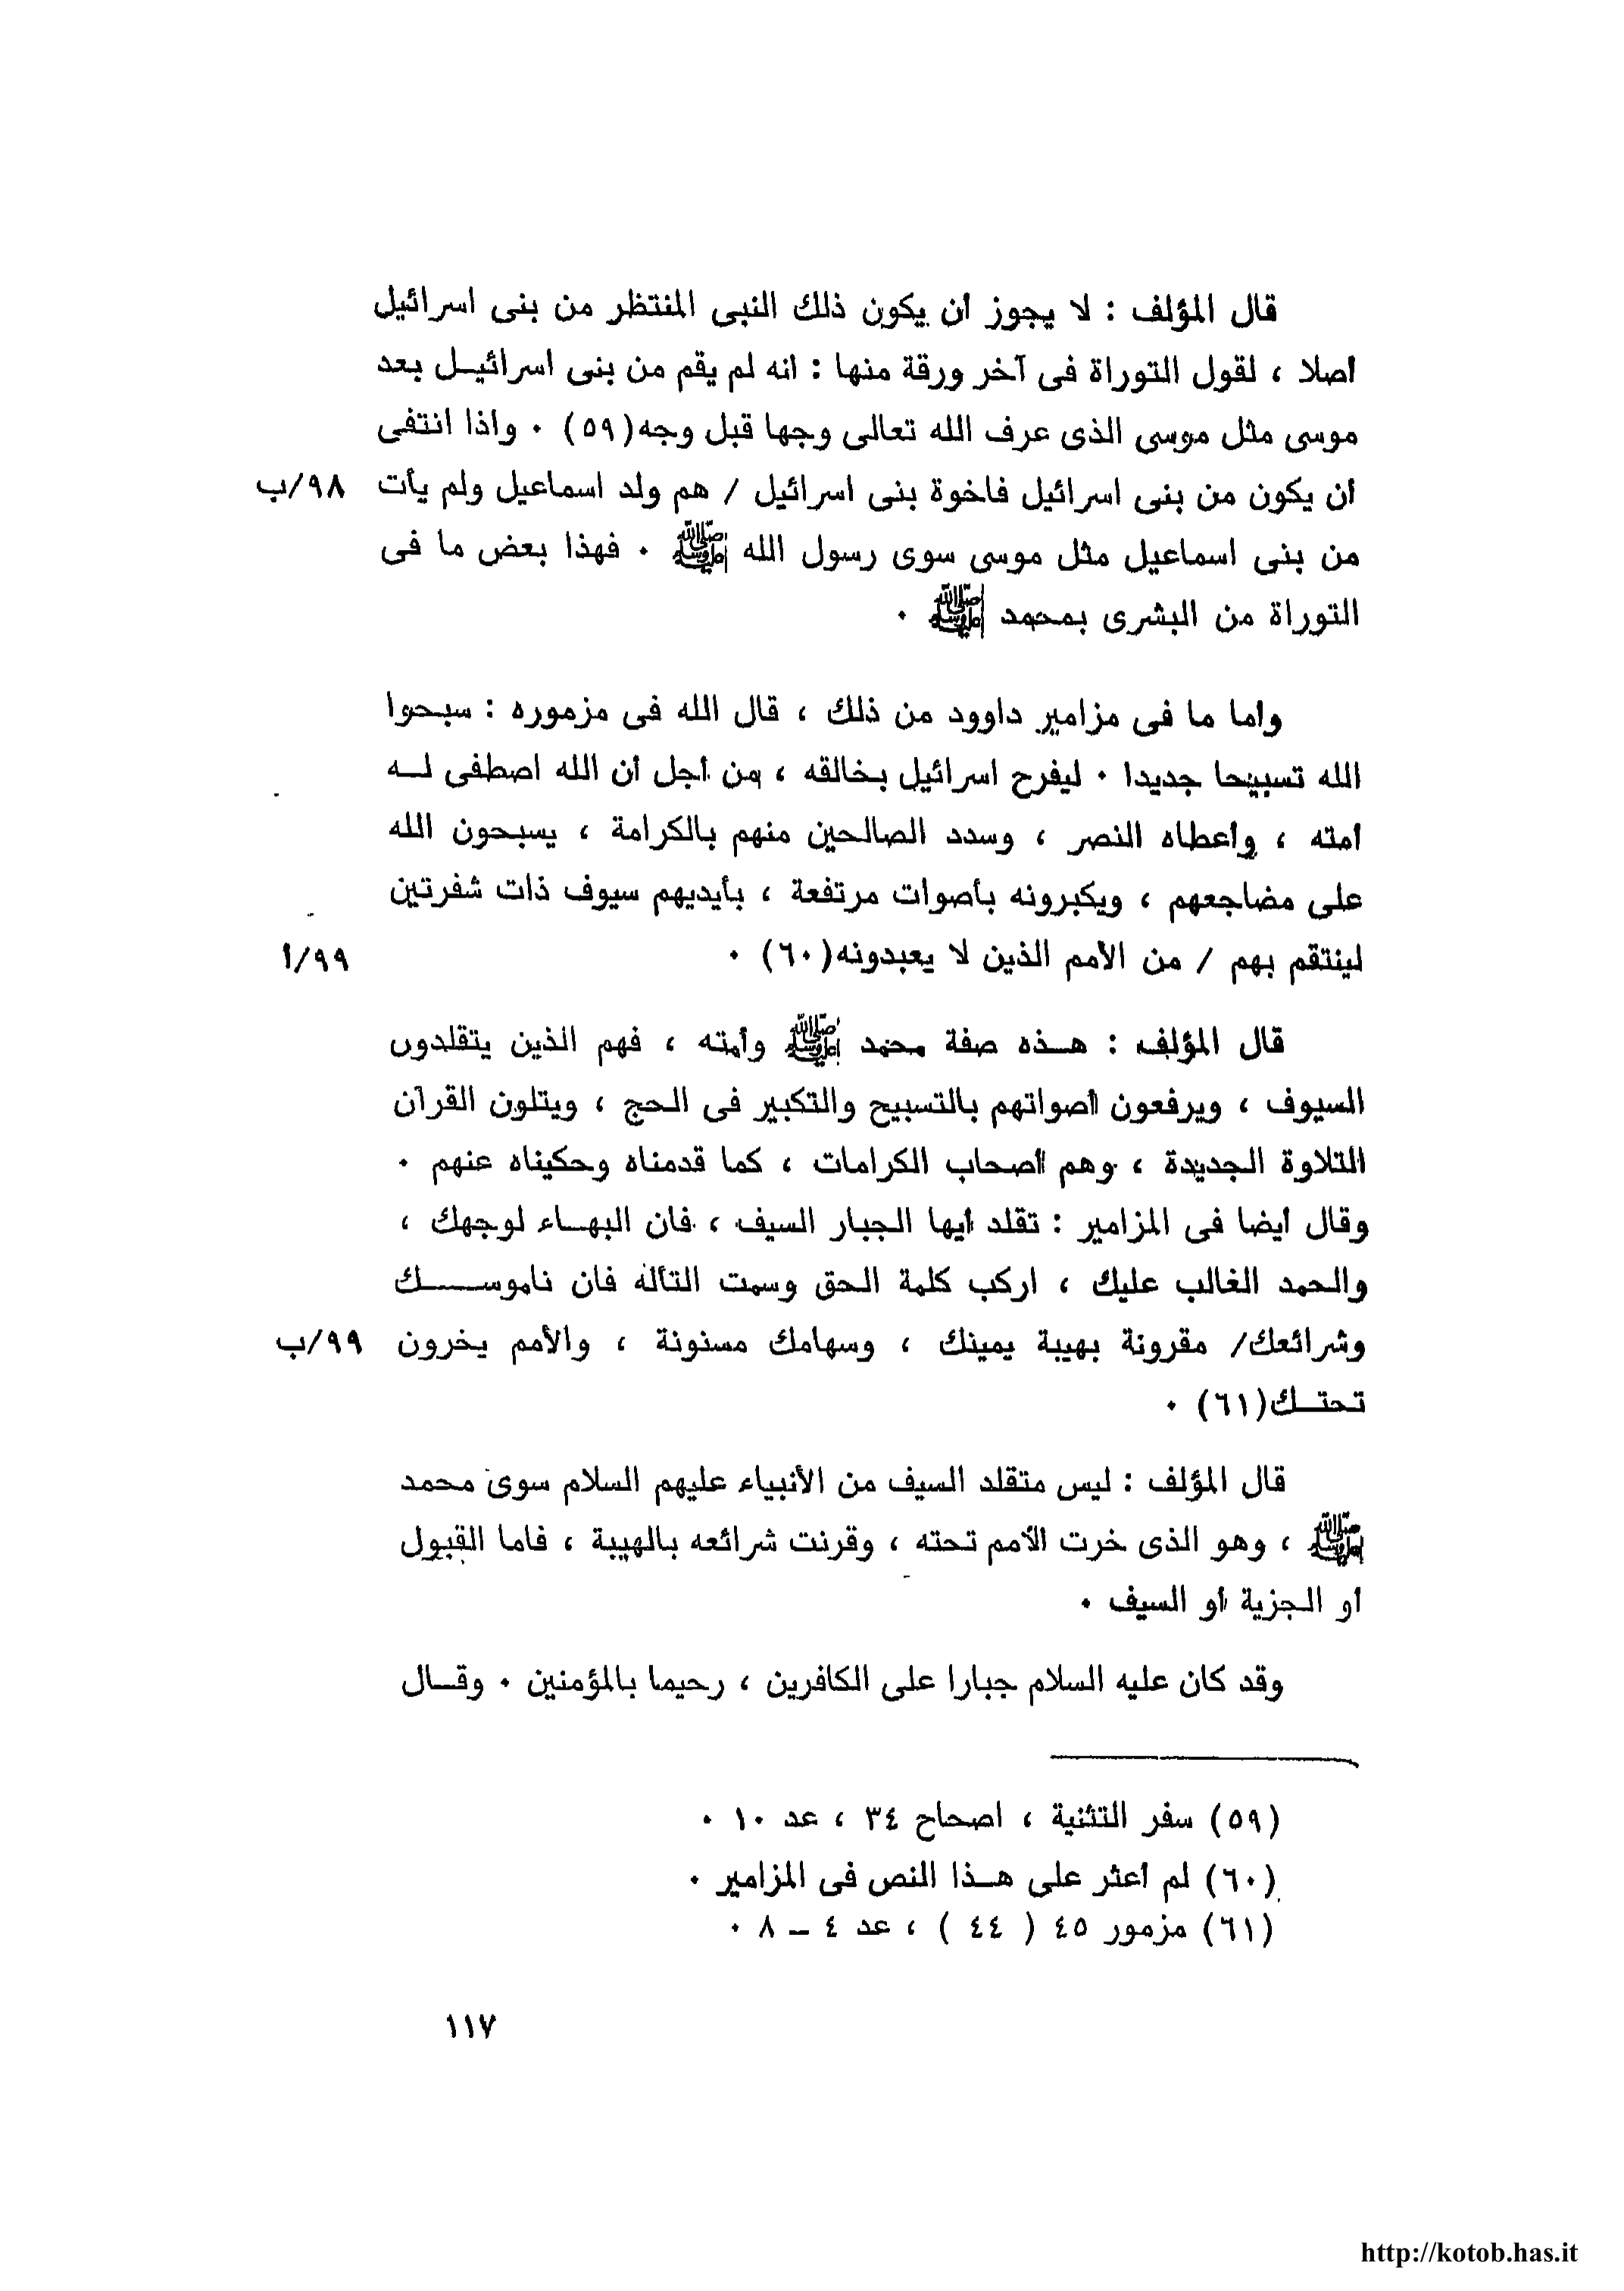 قال المؤلف : لا يجوز أن يكون ذلك النبى المنتظر من بنى اسرائيل
أصلا ، لقول التوراة فى آخر ورقة منها : انه لم يقم من بنى اسرائيـل بعد
موسى مثل موسى الذى عرف الله تعالى وجها قبل وجه(٥٩) ٠ واذا انتفى
أن يكون من بنى اسرائيل فاخوة بنى اسرائيل / هم ولد اسماعيل ولم يأت ٩٨/ب
من بنى اسماعيل مثل موسى سوى رسول الله ﷺ ٠ فهذا بعض ما فى
التوراة من البشرى بمحمد ﷺ ٠
واما ما فى مزامير داوود من ذلك ، قال الله فى مزموره : سبـحوا
الله تسبيحا جديدا ٠ ليفرح اسرائيل بخالقه ، من أجل أن الله اصطفى لـه
أمته ، وأعطاه النصر ، وسدد الصالحين منهم بالكرامة ، يسبحون الله
على مضاجعهم ، ويكبرونه بأصوات مرتفعة ، بأيديهم سيوف ذات شفرتين
لينتقم بهم / من الأمم الذين لا يعبدونه(٦٠) ٠ ٩٩/أ
قال المؤلف : هـذه صفة محمد ﷺ وأمته ، فهم الذين يتقلدون
السيوف ، ويرفعون أصواتهم بالتسبيح والتكبير فى الحج ، ويتلون القرآن
التلاوة الجديدة ، وهم أصحاب الكرامات ، كما قدمناه وحكيناه عنهم ٠
وقال أيضا فى المزامير : تقلد أيها الجبار السيف ، فان البهـاء لوجهك ،
والحمد الغالب عليك ، اركب كلمة الحق وسمت التأله فان ناموســـك
وشرائعك/ مقرونة بهيبة يمينك ، وسهامك مسنونة ، والأمم يخرون ٩٩/ب
تحتـك(٦١) ٠
قال المؤلف : ليس متقلد السيف من الأنبياء عليهم السلام سوى محمد
ﷺ ، وهو الذى خرت الأمم تحته ، وقرنت شرائعه بالهيبة ، فاما القبول
أو الجزية أو السيف ٠
وقد كان عليه السلام جبارا على الكافرين ، رحيما بالمؤمنين ٠ وقـال
(٥٩) سفر التثنية ، اصحاح ٣٤ ، عد ١٠ ٠
(٦٠) لم أعثر على هـذا النص فى المزامير ٠
(٦١) مزمور ٤٥ ( ٤٤ ) ، عد ٤ – ٨ ٠
١١٧
http://kotob.has.it